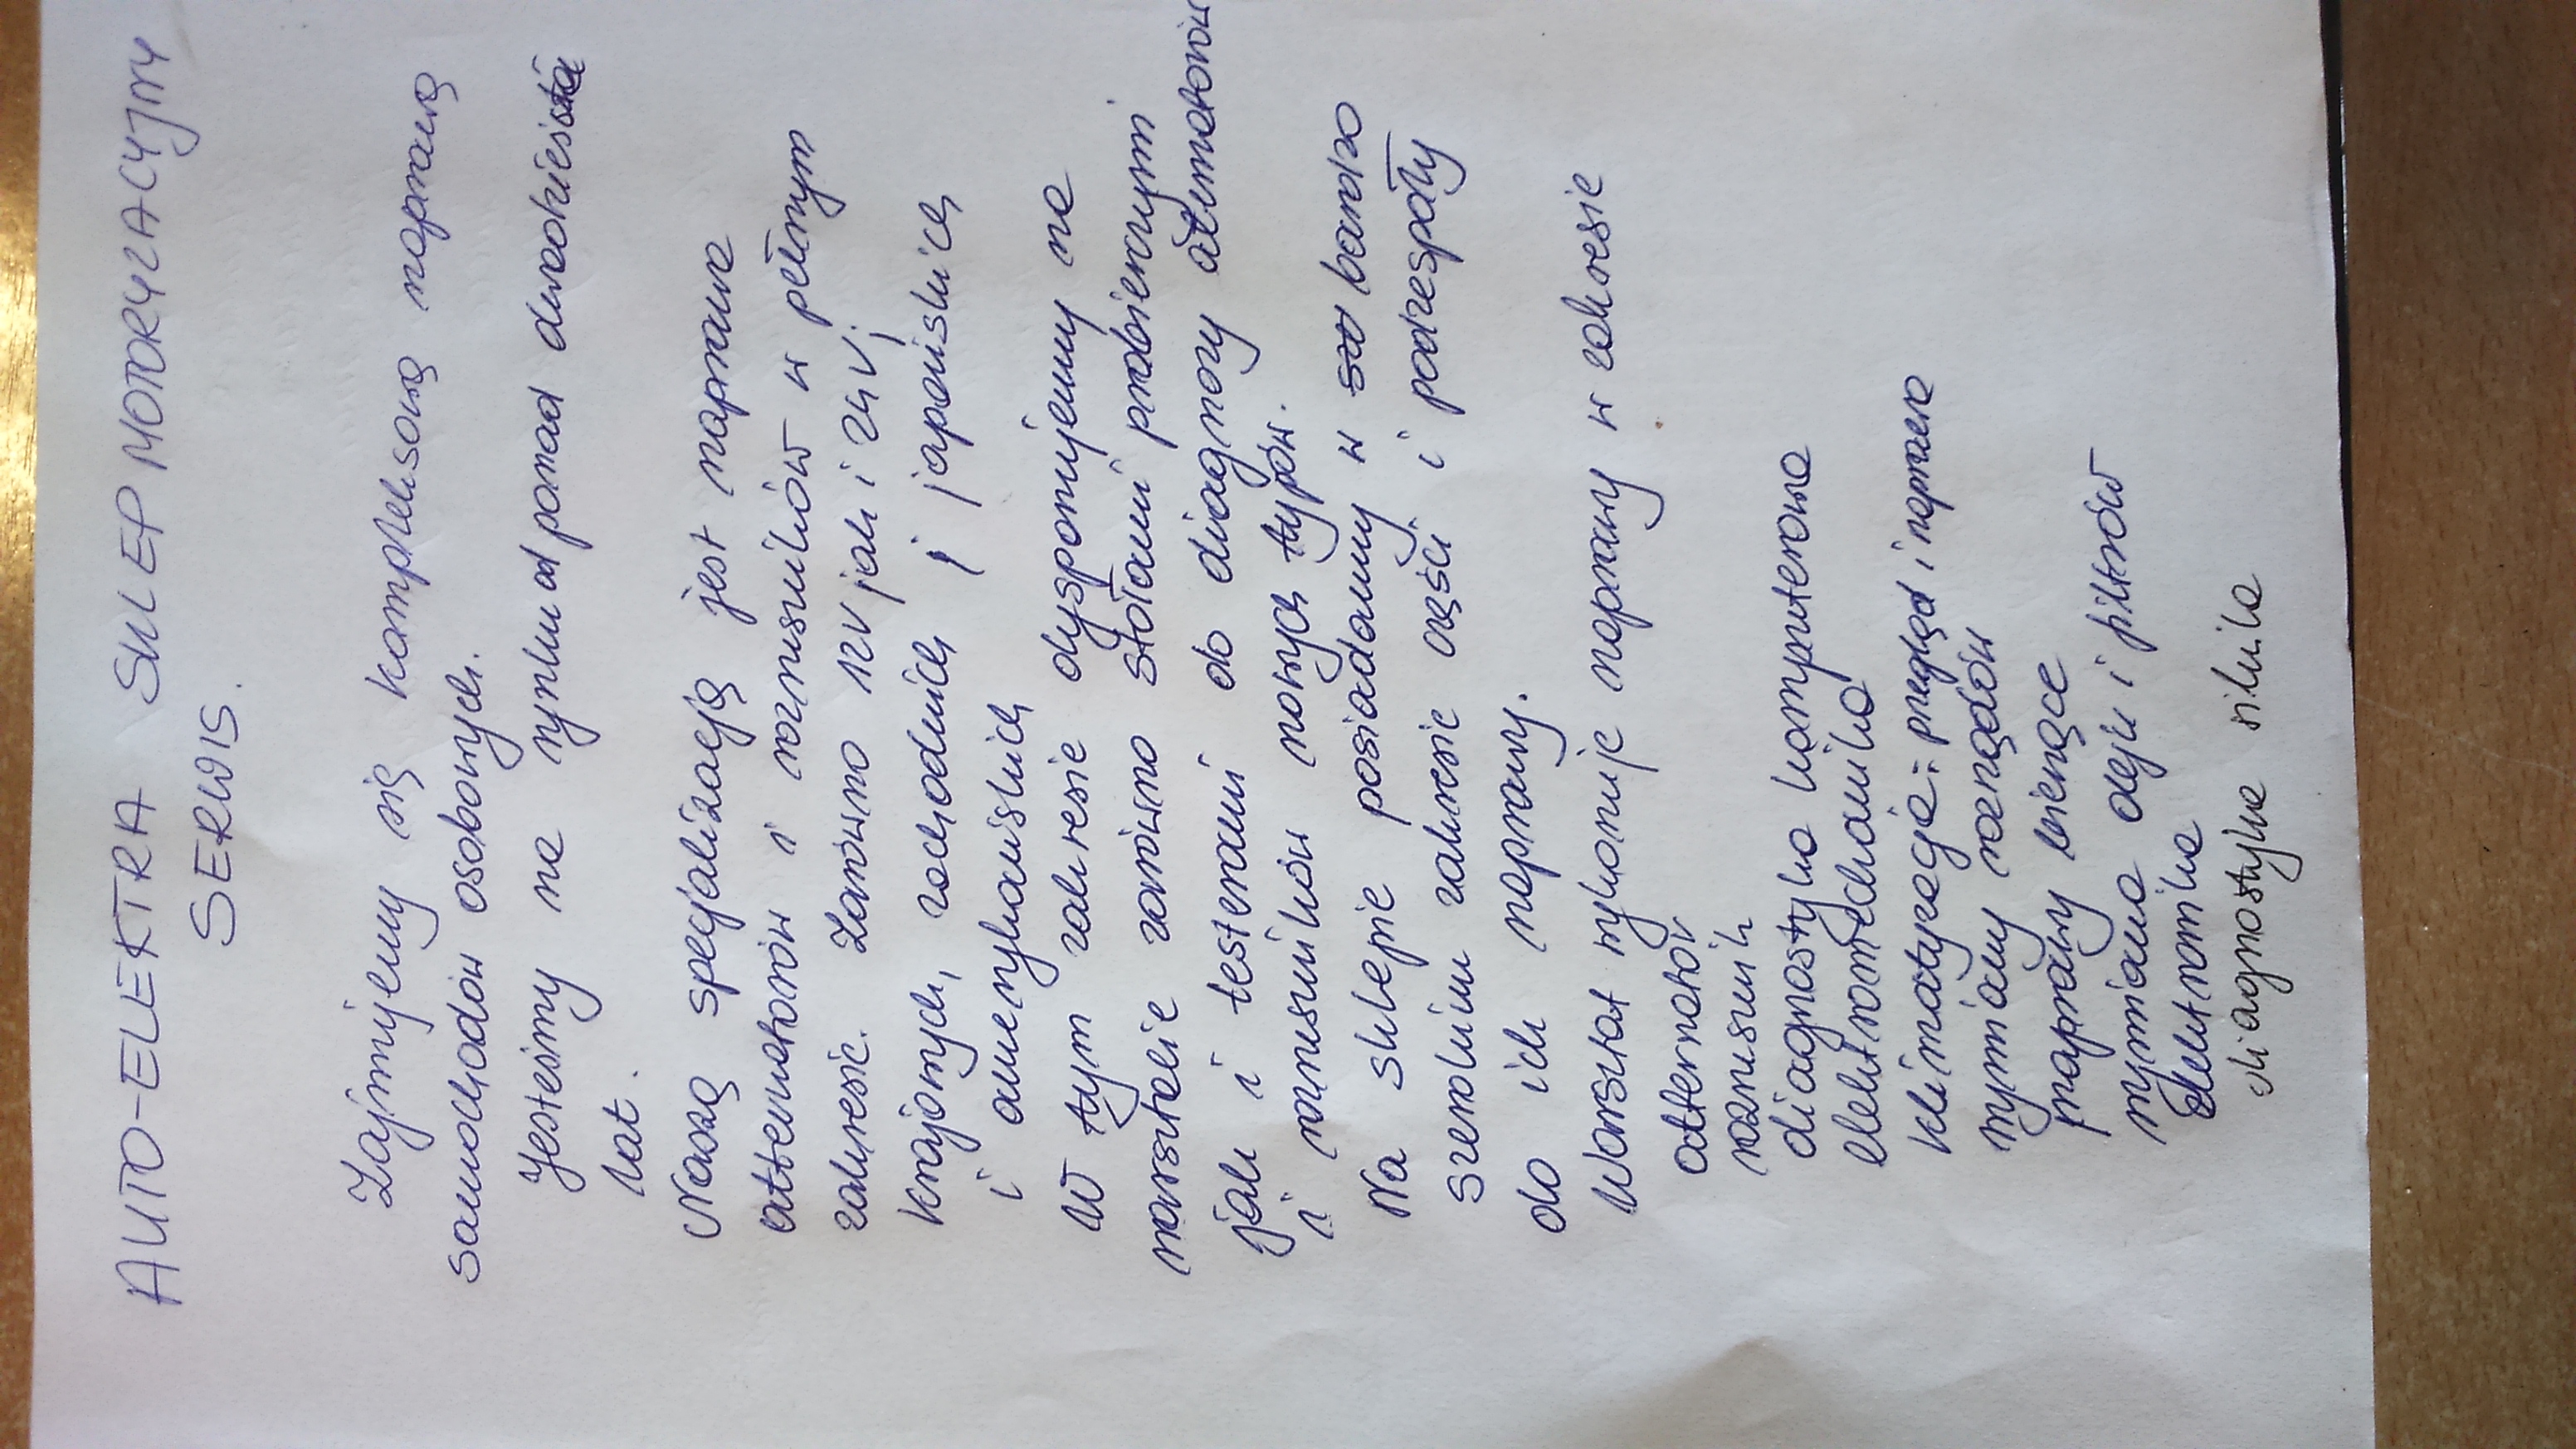 AUTO-ELEKTRA SKLEP MOTORYZACYJNY
SERWIS.
Zajmujemy się kompleksową naprawą
samochodów osobowych.
Jesteśmy na rynku od ponad dwadzieścia
lat.
Naszą specjalizacją jest naprawa
alternatorów i rozruszników w pełnym
zakresie. Zarówno 12V jak i 24V;
krajowych, zachodnich, japońskich
i amerykańskich
W tym zakresie dysponujemy na
warsztacie zarówno stołami probierczymi
jak i testerami do diagnozy alternatorów
i rozruszników nowych typów.
Na sklepie posiadamy w bardzo
szerokim zakresie części i podzespoły
do ich naprawy.
Warsztat wykonuje naprawy w zakresie
alternator
rozrusznik
diagnostyka komputerowa
elektromechanika
klimatyzacja: przegląd i naprawa
wymiany rozrządów
naprawy bieżące
wymiana oleju i filtrów
elektronika
diagnostyka silnika